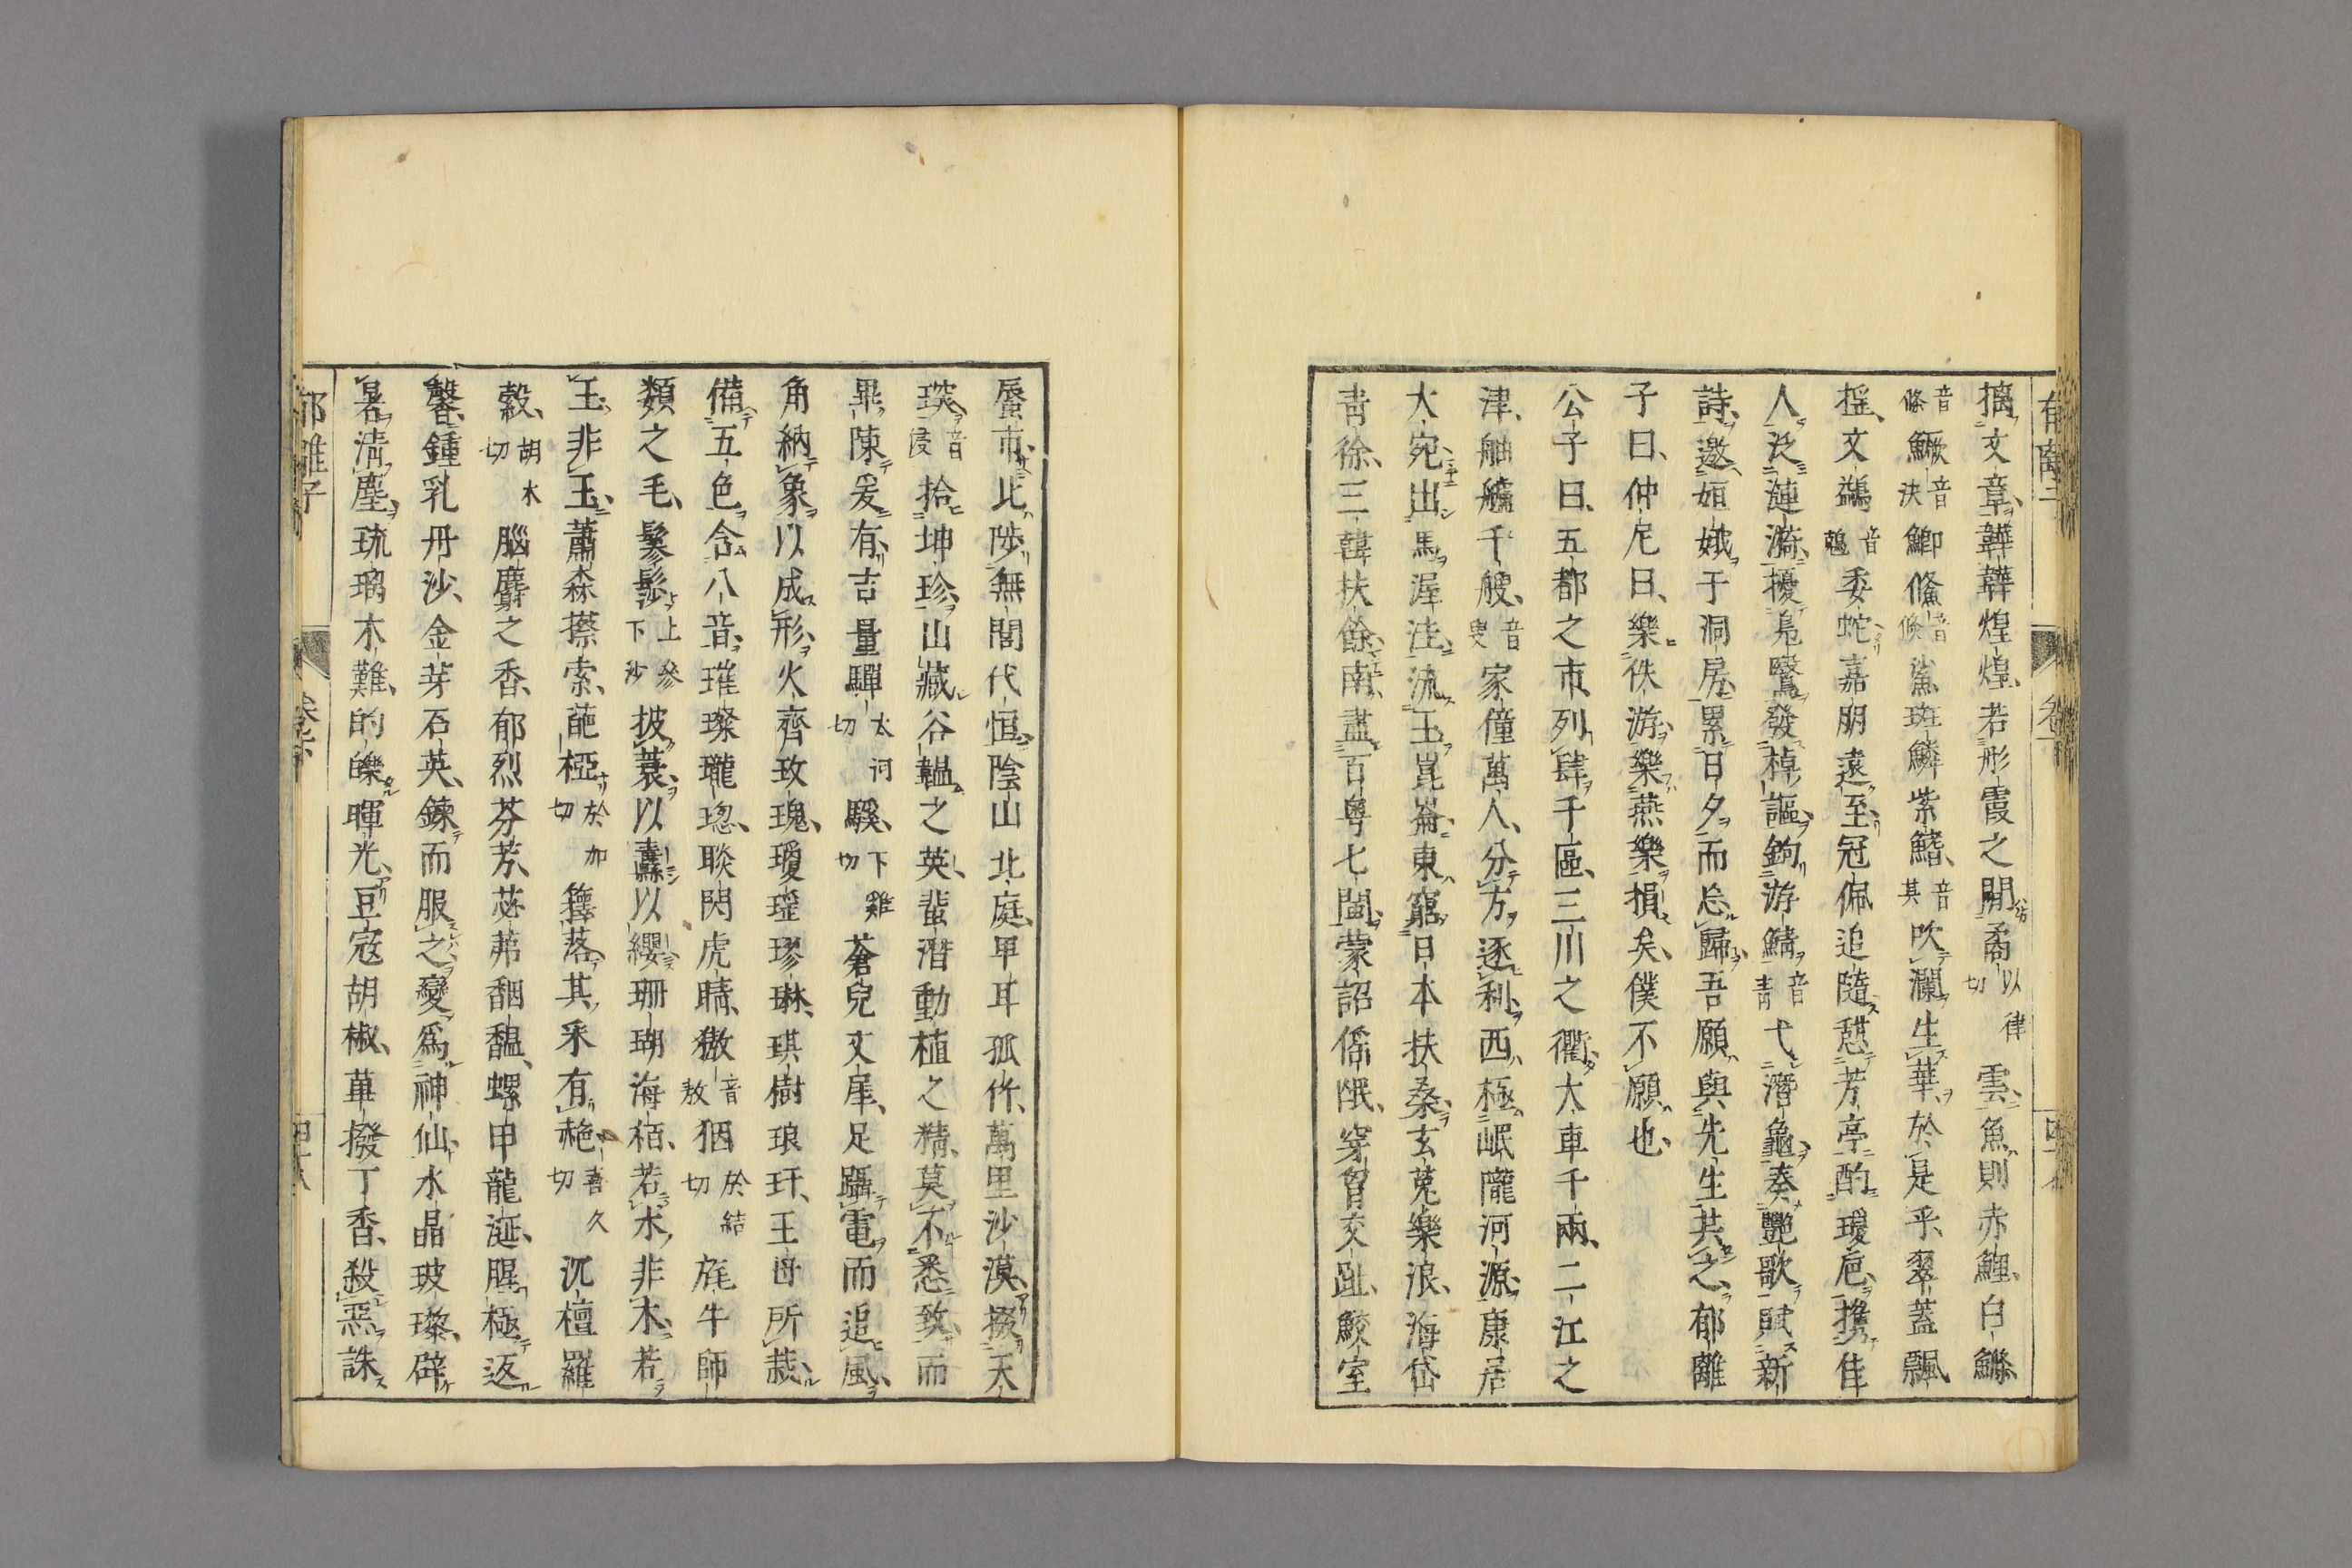 摛文章、韡韡煌煌、若形霞之開矞以律切雲、魚則赤鯉、白鰷
音條鱖音決鯽鯈音儵鯊斑鱗紫鰭、音其吹瀾生華、於是乎、翠蓋飄
摇、文鷁音鶂委蛇嘉朋遠至、冠佩追隨憇芳亭酌瓊巵、携佳
人泛漣漪、擾鳧鷖發棹謳、鉤游鯖音青弋潛龜、奏艷歌賦新
詩、邀姮娥于洞房、累日夕而忘歸、吾願與先生共之、郁離
子曰、仲尼曰、樂佚游、樂燕樂損矣、僕不願也、
公子曰、五都之市、列肆千區、三川之衢、大車千兩、二江之
津、舳艫千艘、音叟家僮萬人、分方逐利、西極岷隴河源、康居
大宛出馬渥洼、流玉崑崙、東窮日本扶桑、玄菟樂浪、海岱
青徐、三韓扶餘、南盡百粤七閩、蒙詔㒓䍧、穿胷交趾、鮫室
蜃市、北陟無閭代恒陰山北庭、卑耳孤竹、萬里沙漠、掇天
琰、音侵拾坤珍、山藏谷韞之英、蜚潛動植之精、莫不悉致、而
畢陳爰有吉量驒太河切騱、下雞切蒼兕文犀、足躡電而追風、
角納象以成形、火齊玫瑰、瓊瑤璆琳、琪樹琅玕、王母所栽、
備五色含八音、璀璨瓏璁、睒閃虎睛、獓音敖㹶於結切旄牛師
類之毛、鬖髿上參下沙披蓑、以纛以纓珊瑚海栢、若水非木、若
玉非玉、蕭森摖索、葩椏於加切籜落其釆有赩喜久切沉檀羅
縠、胡木切腦麝之香、郁烈芬芳、苾茀𩡝馧、螺甲龍涎、腥極返
馨、鍾乳丹沙、金芽石英、鍊而服之、變爲神仙、水晶玻瓈、辟
暑清塵、琉璃木難、的皪暉光、豆寇胡椒、蓽撥丁香、殺惡誅